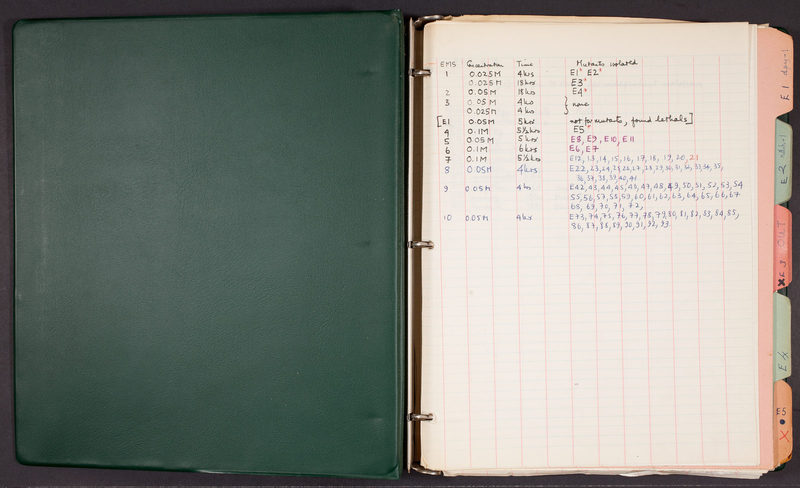 EMS Concentration Time Mutants isolated
1 0.025M 4hrs E1* E2*
0.025M 18hrs E3*
2 0.05M 18hrs E4*
3 0.05M 4hrs } none
0.025M 4hrs
[E1 0.05M 5hrs not for mutants, found lethals]
4 0.1M 5½hrs E5*
5 0.05M 5hrs E8, E9, E10, E11
6 0.1M 6hrs E6, E7
7 0.1M 5½hrs E12, 13, 14, 15, 16, 17, 18, 19, 20, 21
8 0.05M 4hrs E22, 23, 24, 25, 26, 27, 28, 29, 30, 31, 32, 33, 34, 35,
36, 37, 38, 39, 40, 41
9 0.05M 4hrs E42, 43, 44, 45, 46, 47, 48, 49, 50, 51, 52, 53, 54
55, 56, 57, 58, 59, 60, 61, 62, 63, 64, 65, 66, 67
68, 69, 70, 71, 72,
10 0.05M 4hrs E73, 74, 75, 76, 77, 78, 79, 80, 81, 82, 83, 84, 85,
86, 87, 88, 89, 90, 91, 92, 93
E1 dpy-1
E2
E3
E4
E5
X